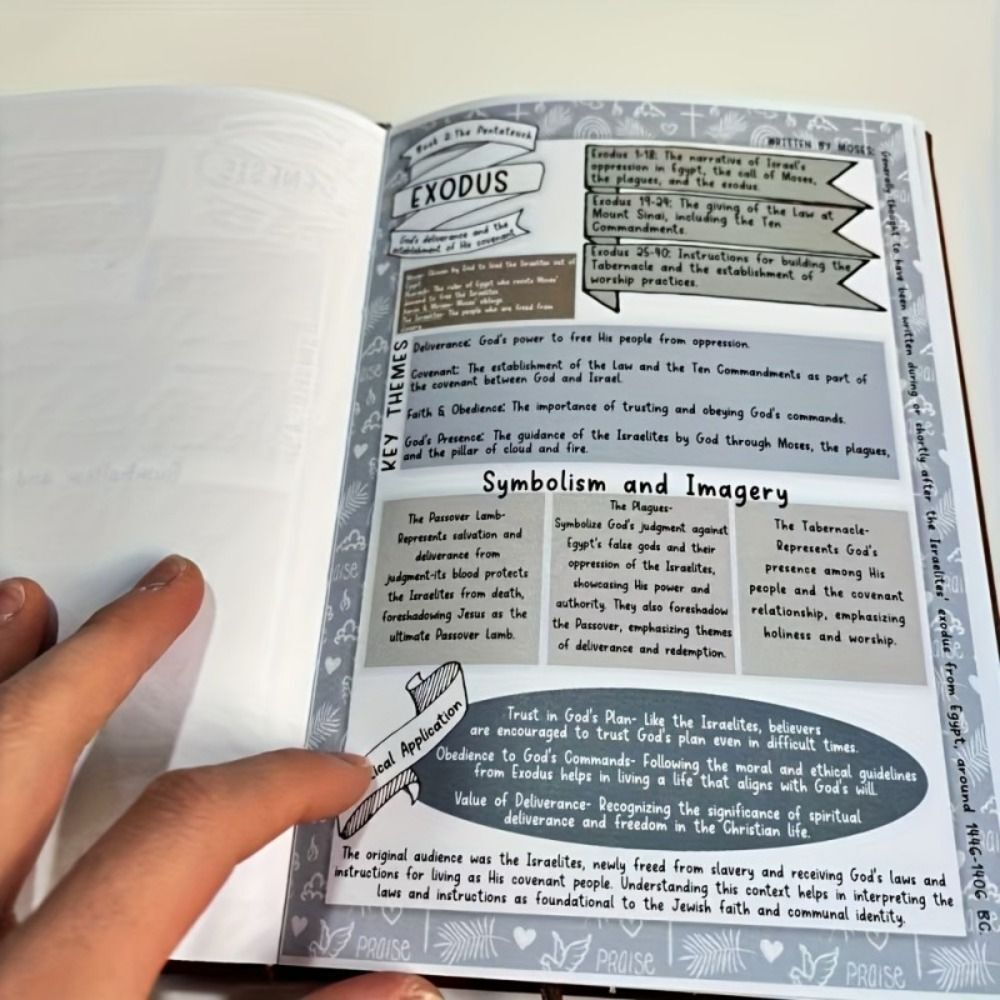 Book 2: The Pentateuch
EXODUS
God's deliverance and the
establishment of His covenant
WRITTEN BY MOSES:
Generally thought to have been written during or shortly after the Israelites' exodus from Egypt, around 1446-1406 BC
Exodus 1-18: The narrative of Israel's
oppression in Egypt, the call of Moses,
the plagues, and the exodus.
Exodus 19-24: The giving of the Law at
Mount Sinai, including the Ten
Commandments.
Exodus 25-40: Instructions for building the
Tabernacle and the establishment of
worship practices.
Moses: Chosen by God to lead the Israelites out of
Egypt
Pharaoh: The ruler of Egypt who resists Moses'
demand to free the Israelites
Aaron & Miriam: Moses' siblings
The Israelites: The people who are freed from
KEY THEMES
Deliverance: God's power to free His people from oppression.
Covenant: The establishment of the Law and the Ten Commandments as part of
the covenant between God and Israel.
Faith & Obedience: The importance of trusting and obeying God's commands.
God's Presence: The guidance of the Israelites by God through Moses, the plagues,
and the pillar of cloud and fire.
Symbolism and Imagery
The Passover Lamb-
Represents salvation and
deliverance from
judgment-its blood protects
the Israelites from death,
foreshadowing Jesus as the
ultimate Passover Lamb.
The Plagues-
Symbolize God's judgment against
Egypt's false gods and their
oppression of the Israelites,
showcasing His power and
authority. They also foreshadow
the Passover, emphasizing themes
of deliverance and redemption.
The Tabernacle-
Represents God's
presence among His
people and the covenant
relationship, emphasizing
holiness and worship.
Application
Trust in God's Plan- Like the Israelites, believers
are encouraged to trust God's plan even in difficult times.
Obedience to God's Commands- Following the moral and ethical guidelines
from Exodus helps in living a life that aligns with God's will.
Value of Deliverance- Recognizing the significance of spiritual
deliverance and freedom in the Christian life.
The original audience was the Israelites, newly freed from slavery and receiving God's laws and
instructions for living as His covenant people. Understanding this context helps in interpreting the
laws and instructions as foundational to the Jewish faith and communal identity.
PRAISE
PRAISE
PRAISE